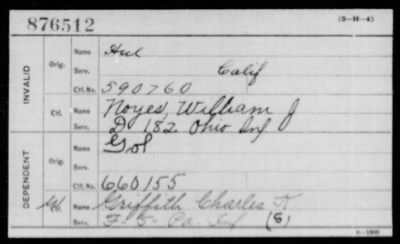 876512
(3-H-4)
INVALID
Orig. Name
Serv. Calif
Ctf. No. 590760
Ctf. Name Noyes, William J
Serv. D 182 Ohio Inf
DEPENDENT
Orig. Name Gol
Serv.
Ctf. No. 660155
Ctf. Name Griffith Charles K.
Serv. F-5- Inf (8)